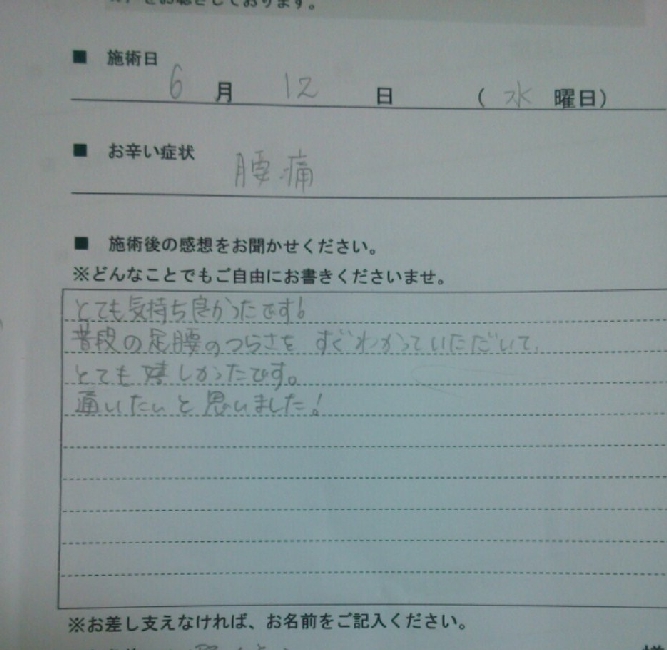 しております。
■ 施術日
6 月 12 日 ( 水 曜日)
■ お辛い症状 腰痛
■ 施術後の感想をお聞かせください。
※どんなことでもご自由にお書きくださいませ。
とても気持ち良かったです!
普段の足腰のつらさを すぐわかっていただいて、
とても嬉しかったです。
通いたいと思いました!
※お差し支えなければ、お名前をご記入ください。
様